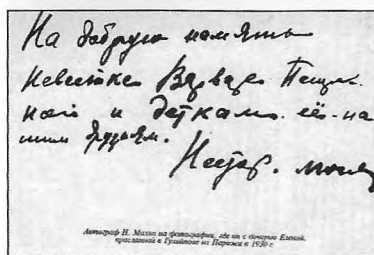 На добрую память
Невестке Варваре Петров
ной и деткам её-на
шим друзьям.
Нестор. Махно
Автограф Н. Махно на фотографии, где он с дочерью Еленой,
присланной в Гуляйполе из Парижа в 1930 г.